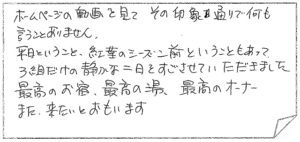 ホームページの動画を見て その印象通りで何も
言うことありません。
平日ということ、紅葉のシーズン前ということもあって
3組だけの静かな一日をすごさせていただきました
最高のお宿、最高の湯、最高のオーナー
また 来たいとおもいます